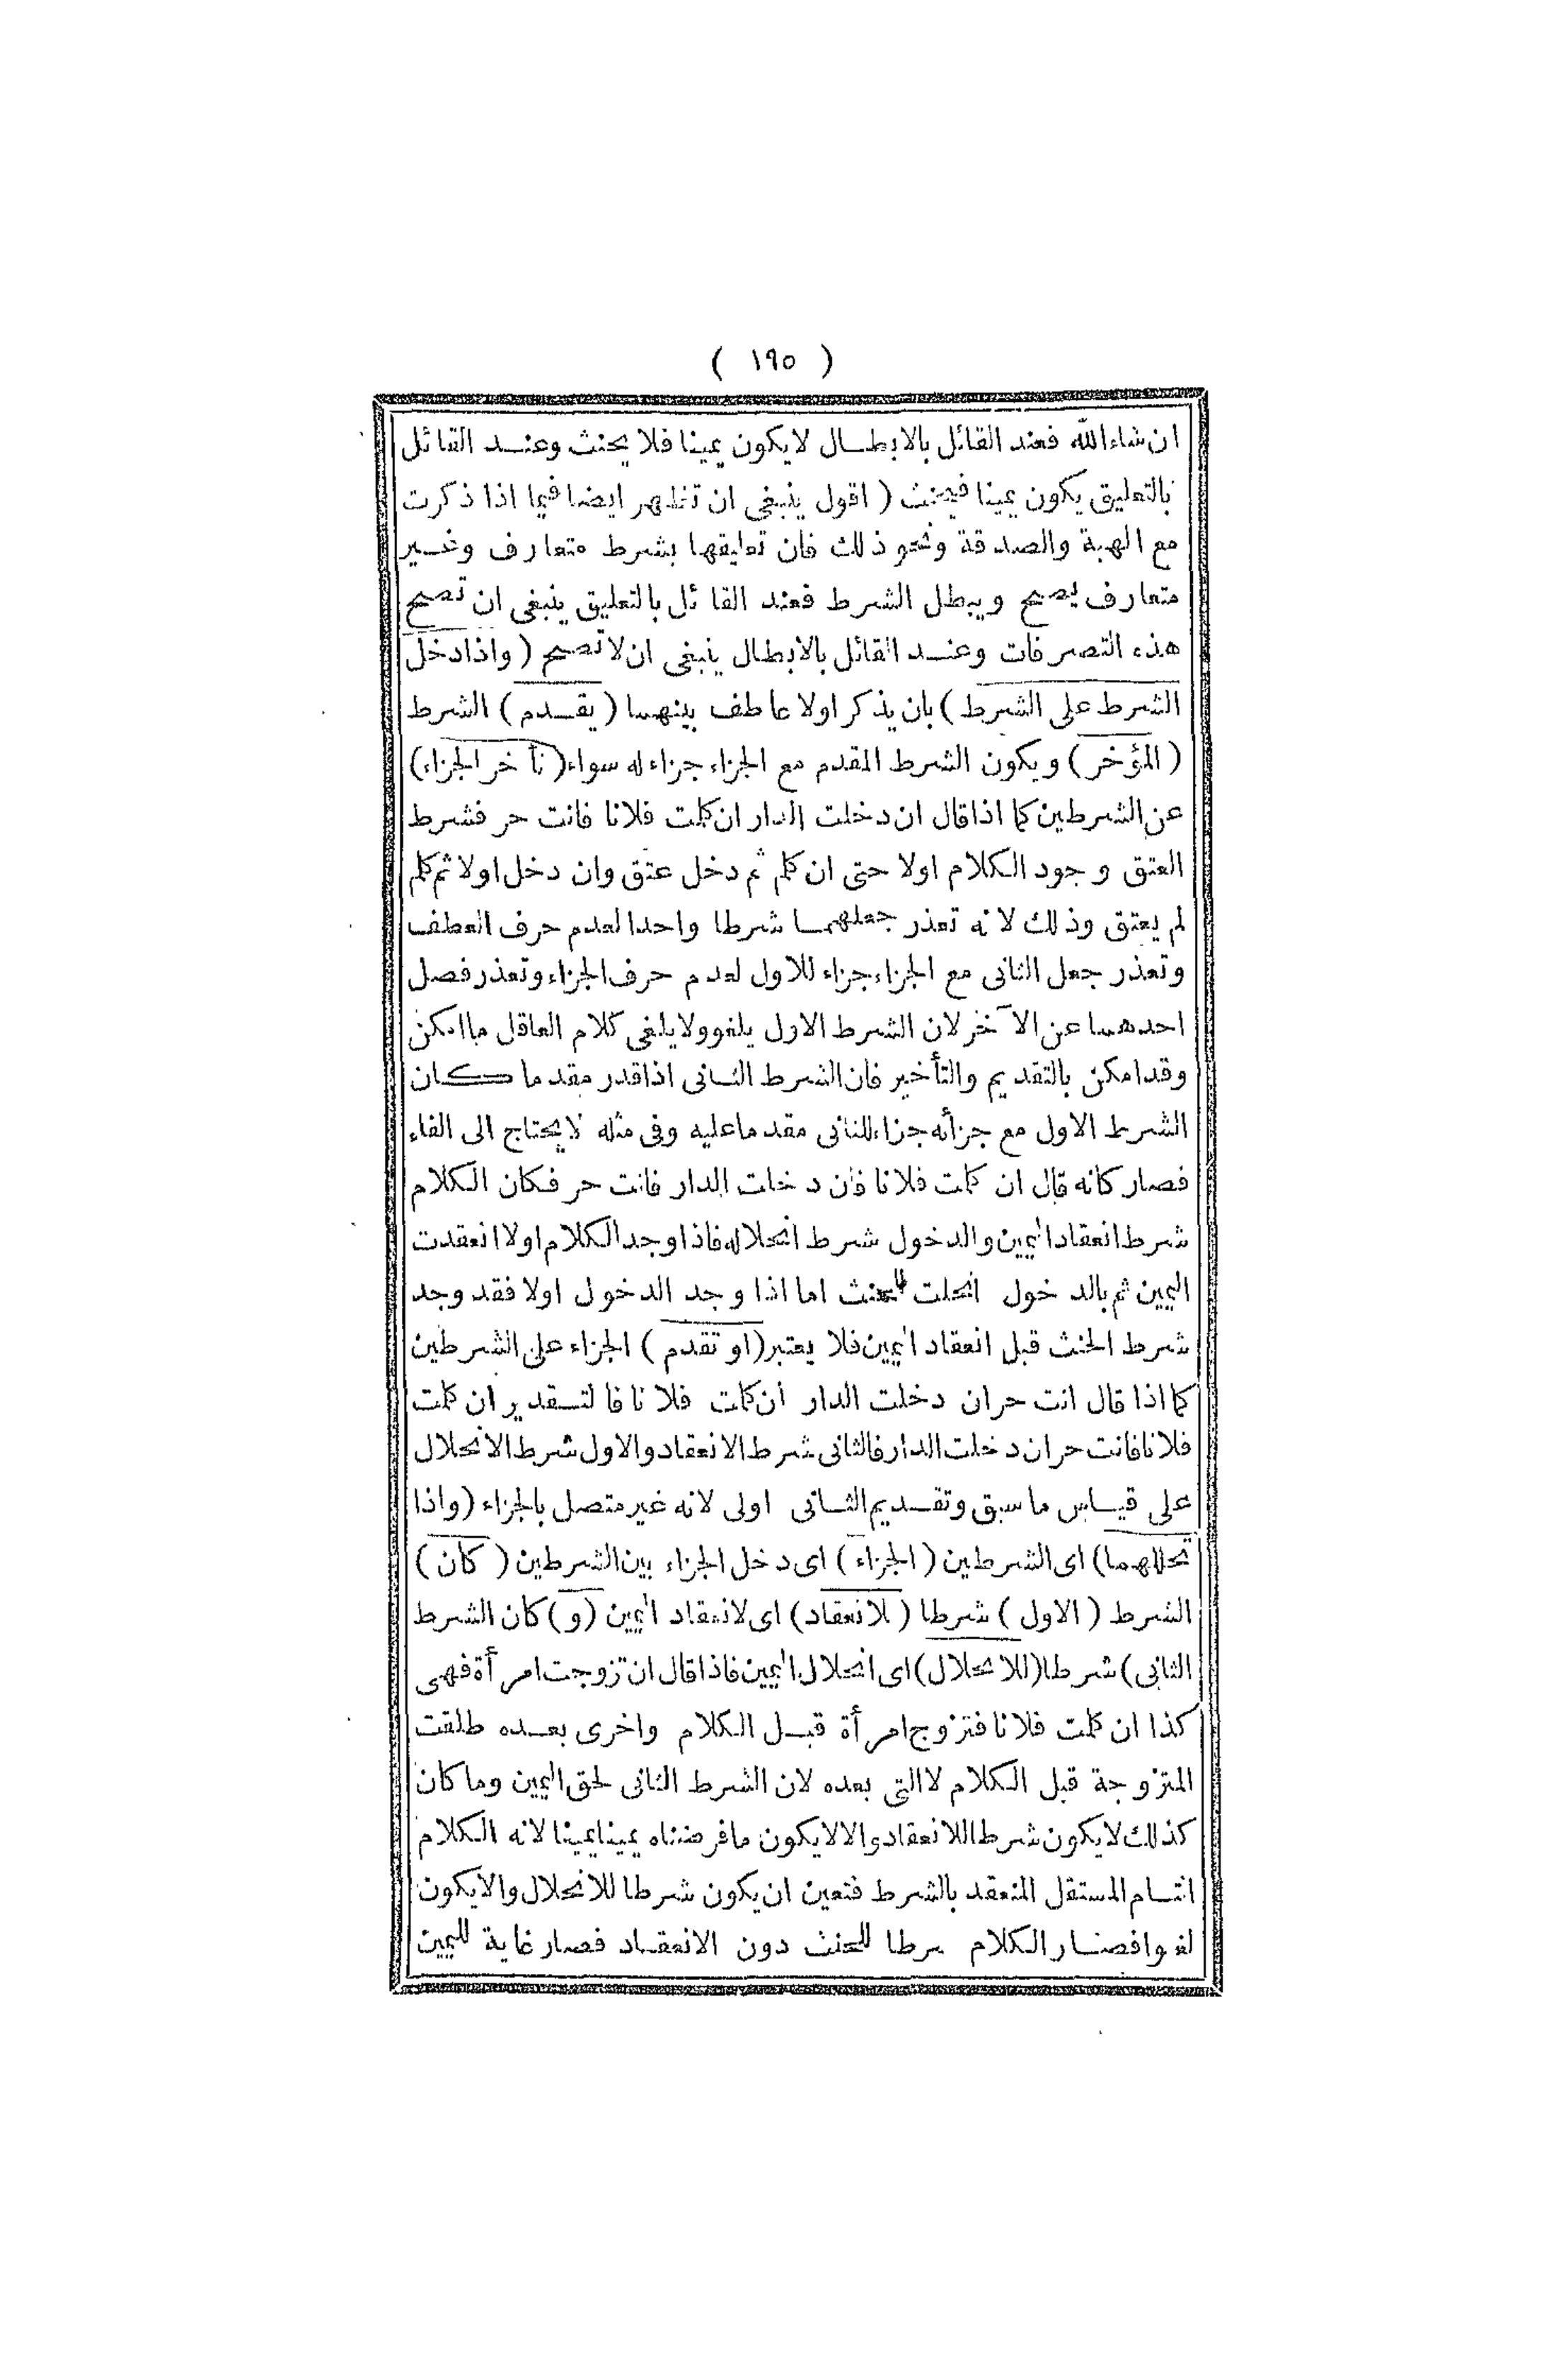 ( ١٩٥ )
ان شاء الله فعند القائل بالابطال لا يكون يمينا فلا يحنث وعند القائل
بالتعليق يكون يمينا فيحنث ( اقول ينبغى ان تظهر ايضا فيما اذا ذكرت
مع الهبة والصدقة ونحو ذلك فان تعليقها بشرط متعارف وغير
متعارف يصح ويبطل الشرط فعند القائل بالتعليق ينبغى ان تصح
هذه التصرفات وعند القائل بالابطال ينبغى ان لا تصح ( واذا دخل
الشرط على الشرط ) بان يذكر اولا عاطف بينهما ( يقدم ) الشرط
( المؤخر ) ويكون الشرط المقدم مع الجزاء جزاء له سواء ( تأخر الجزاء )
عن الشرطين كما اذا قال ان دخلت الدار ان كلمت فلانا فانت حر فشرط
العتق وجود الكلام اولا حتى ان كلم ثم دخل عتق وان دخل اولا ثم كلم
لم يعتق وذلك لانه تعذر جعلهما شرطا واحدا لعدم حرف العطف
وتعذر جعل الثانى مع الجزاء جزاء للاول لعدم حرف الجزاء وتعذر فصل
احدهما عن الآخر لان الشرط الاول يلغو ولا يلغى كلام العاقل ما امكن
وقد امكن بالتقديم والتأخير فان الشرط الثانى اذا قدر مقدما كان
الشرط الاول مع جزائه جزاء للثانى مقدما عليه وفى مثله لا يحتاج الى الفاء
فصار كانه قال ان كلمت فلانا فان دخلت الدار فانت حر فكان الكلام
شرط انعقاد اليمين والدخول شرط انحلاله فاذا وجد الكلام اولا انعقدت
اليمين ثم بالدخول انحلت للحنث اما اذا وجد الدخول اولا فقد وجد
شرط الحنث قبل انعقاد اليمين فلا يعتبر ( او تقدم ) الجزاء على الشرطين
كما اذا قال انت حر ان دخلت الدار ان كلمت فلانا فالتقدير ان كلمت
فلانا فانت حر ان دخلت الدار فالثانى شرط الانعقاد والاول شرط الانحلال
على قياس ما سبق وتقديم الثانى اولى لانه غير متصل بالجزاء ( واذا
تخللهما ) اى الشرطين ( الجزاء ) اى دخل الجزاء بين الشرطين ( كان )
الشرط ( الاول ) شرطا ( لانعقاد ) اى لانعقاد اليمين ( و ) كان الشرط
الثانى ) شرطا ( للانحلال ) اى انحلال اليمين فاذا قال ان تزوجت امرأة فهى
كذا ان كلمت فلانا فتزوج امرأة قبل الكلام واخرى بعده طلقت
المتزوجة قبل الكلام لا التى بعده لان الشرط الثانى لحق اليمين وما كان
كذلك لا يكون شرطا للانعقاد والا لا يكون ما فرضناه يمينا يمينا لانه الكلام
التام المستقل المنعقد بالشرط فتعين ان يكون شرطا للانحلال والا يكون
لغوا فصار الكلام شرطا للحنث دون الانعقاد فصار غاية لليمين